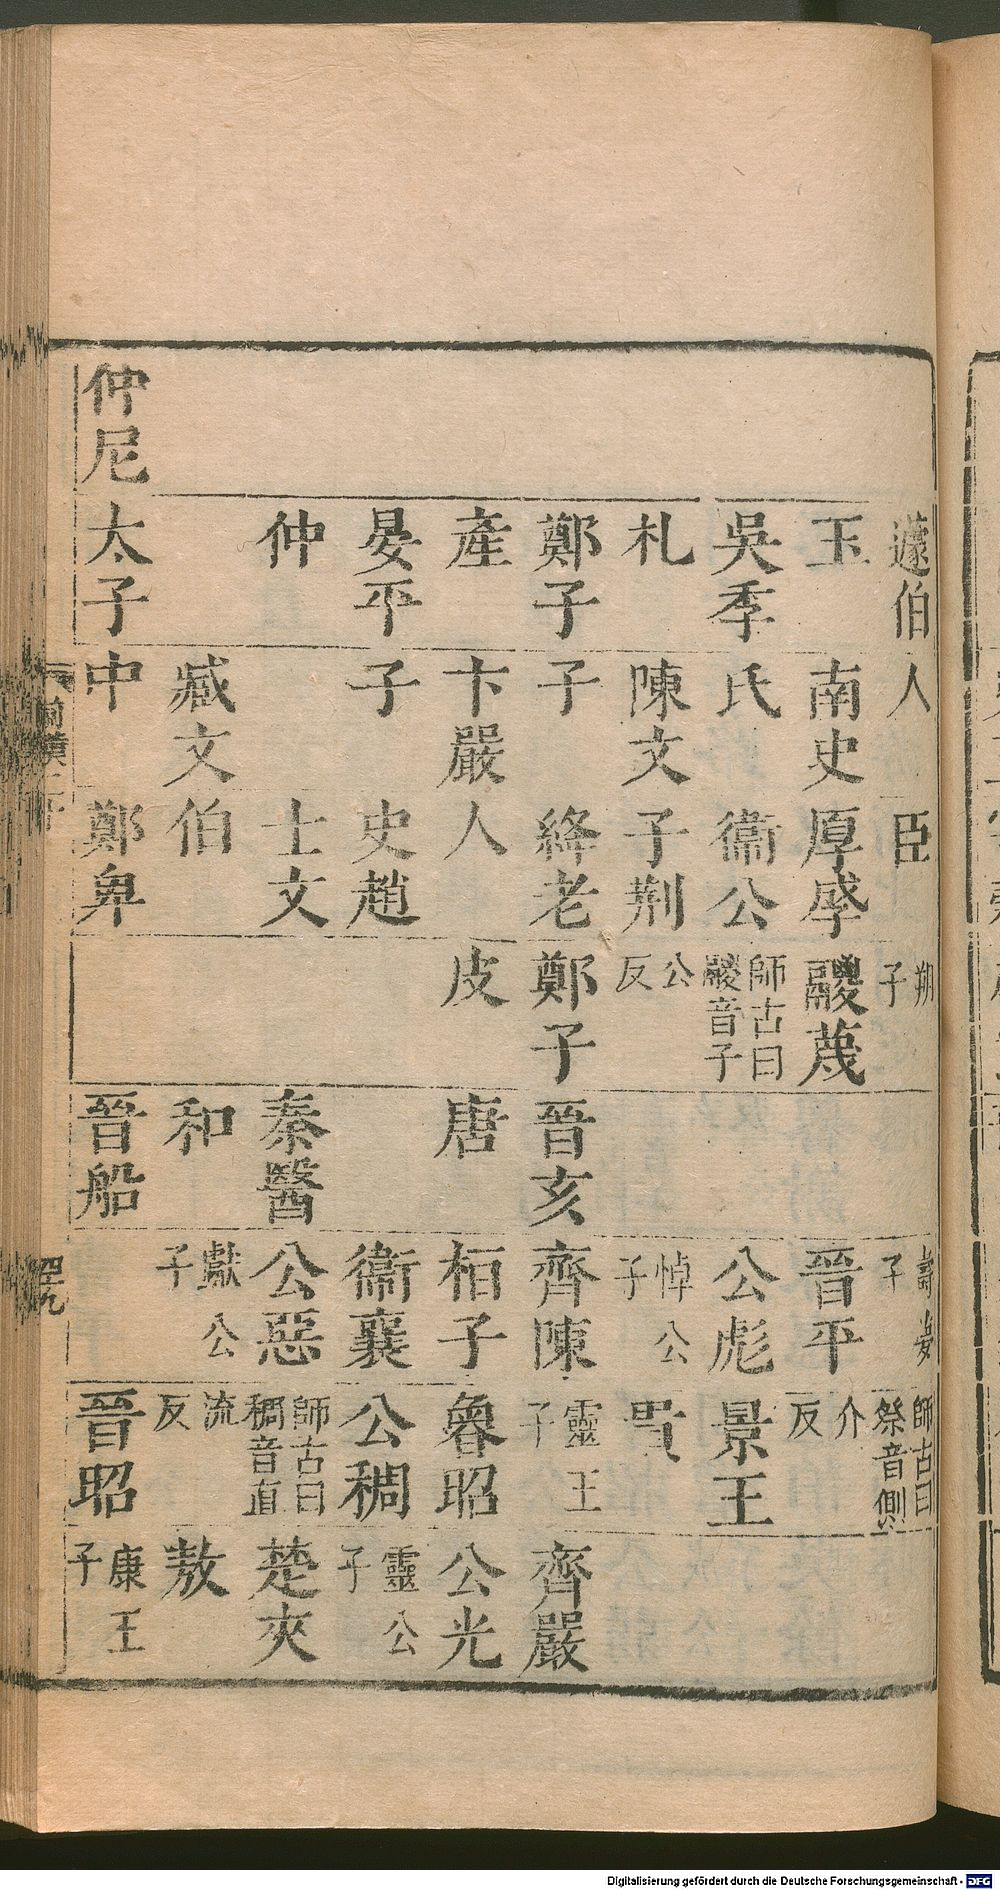 蘧伯人臣朔子 師古曰祭音側
玉南史厚鬷蔑晉平介反
吳季氏衞公師古曰鬷音子公彪景王
札陳文子荆公反悼公子貴
鄭子子絳老鄭子晉亥齊陳靈王子齊嚴
產卞嚴人皮唐栢子魯昭公光
晏平子史趙衞襄公稠靈公子
仲士文秦醫公惡師古曰稠音直楚夾
臧文伯和獻公子流反敖
仲尼太子中鄭卑晉船晉昭康王子
Digitalisierung gefördert durch die Deutsche Forschungsgemeinschaft - DFG